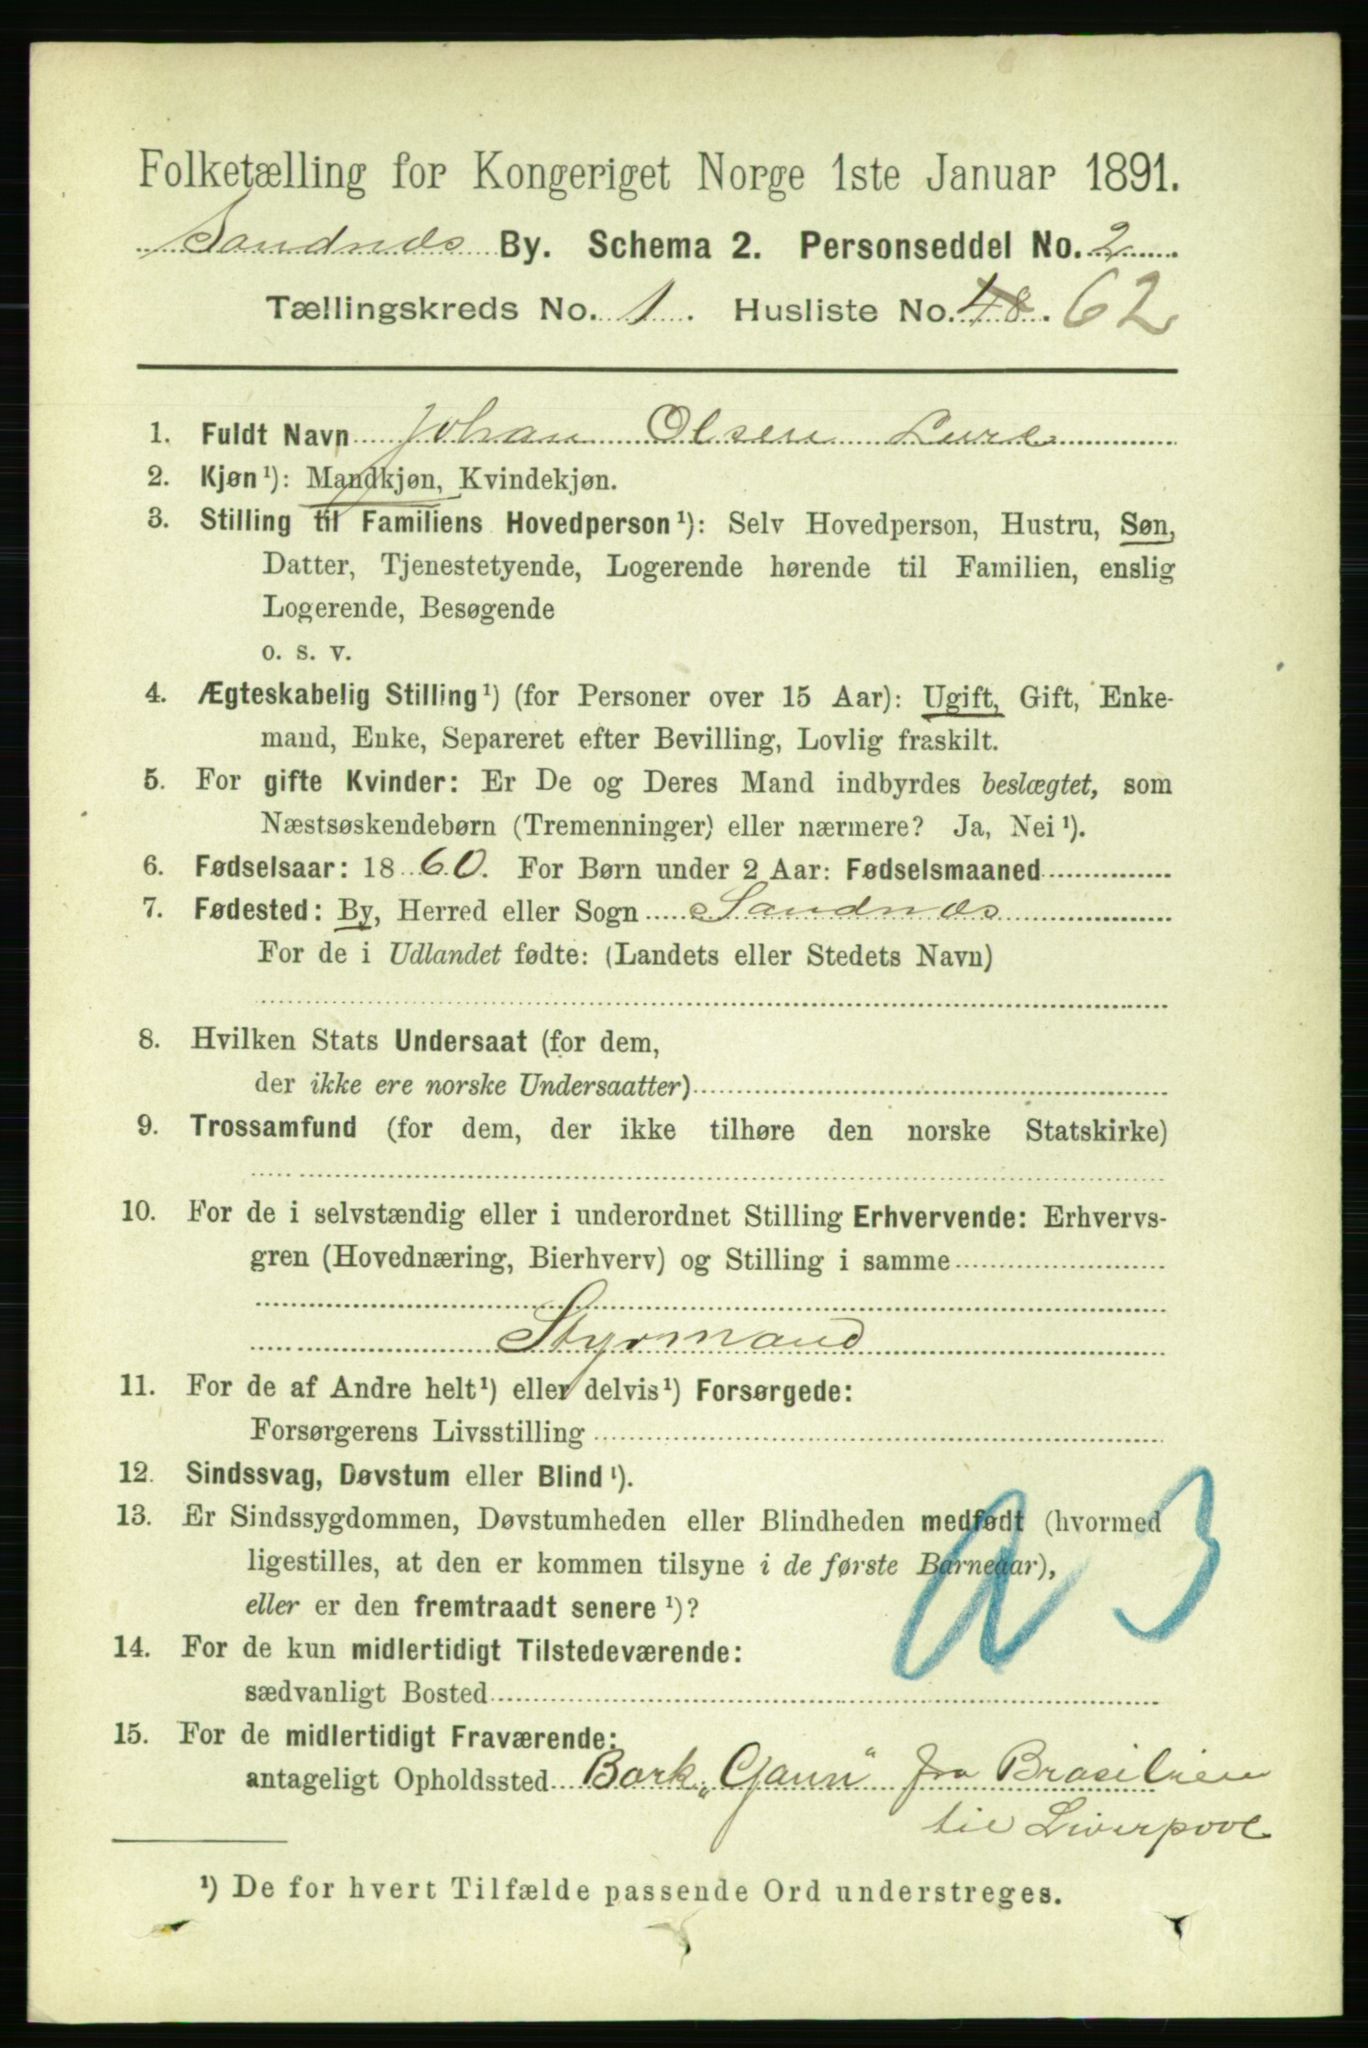 Folketælling for Kongeriget Norge 1ste Januar 1891.
Sandnæs By. Schema 2. Personseddel No. 2
Tællingskreds No. 1. Husliste No. 48. 62
1. Fuldt Navn Johan Olsen Lura
2. Kjøn¹): Mandkjøn, Kvindekjøn.
3. Stilling til Familiens Hovedperson¹): Selv Hovedperson, Hustru, Søn,
Datter, Tjenestetyende, Logerende hørende til Familien, enslig
Logerende, Besøgende
o. s. v.
4. Ægteskabelig Stilling¹) (for Personer over 15 Aar): Ugift, Gift, Enke-
mand, Enke, Separeret efter Bevilling, Lovlig fraskilt.
5. For gifte Kvinder: Er De og Deres Mand indbyrdes beslægtet, som
Næstsøskendebørn (Tremenninger) eller nærmere? Ja, Nei¹).
6. Fødselsaar: 1860. For Børn under 2 Aar: Fødselsmaaned
7. Fødested: By, Herred eller Sogn Sandnæs
For de i Udlandet fødte: (Landets eller Stedets Navn)
8. Hvilken Stats Undersaat (for dem,
der ikke ere norske Undersaatter)
9. Trossamfund (for dem, der ikke tilhøre den norske Statskirke)
10. For de i selvstændig eller i underordnet Stilling Erhvervende: Erhvervs-
gren (Hovednæring, Bierhverv) og Stilling i samme
Styrmand
11. For de af Andre helt¹) eller delvis¹) Forsørgede:
Forsørgerens Livsstilling
12. Sindssvag, Døvstum eller Blind¹).
13. Er Sindssygdommen, Døvstumheden eller Blindheden medfødt (hvormed
ligestilles, at den er kommen tilsyne i de første Barneaar),
eller er den fremtraadt senere¹)?
a 3
14. For de kun midlertidigt Tilstedeværende:
sædvanligt Bosted
15. For de midlertidigt Fraværende:
antageligt Opholdssted Bark „Gann" fra Brasilien
til Liverpool
¹) De for hvert Tilfælde passende Ord understreges.